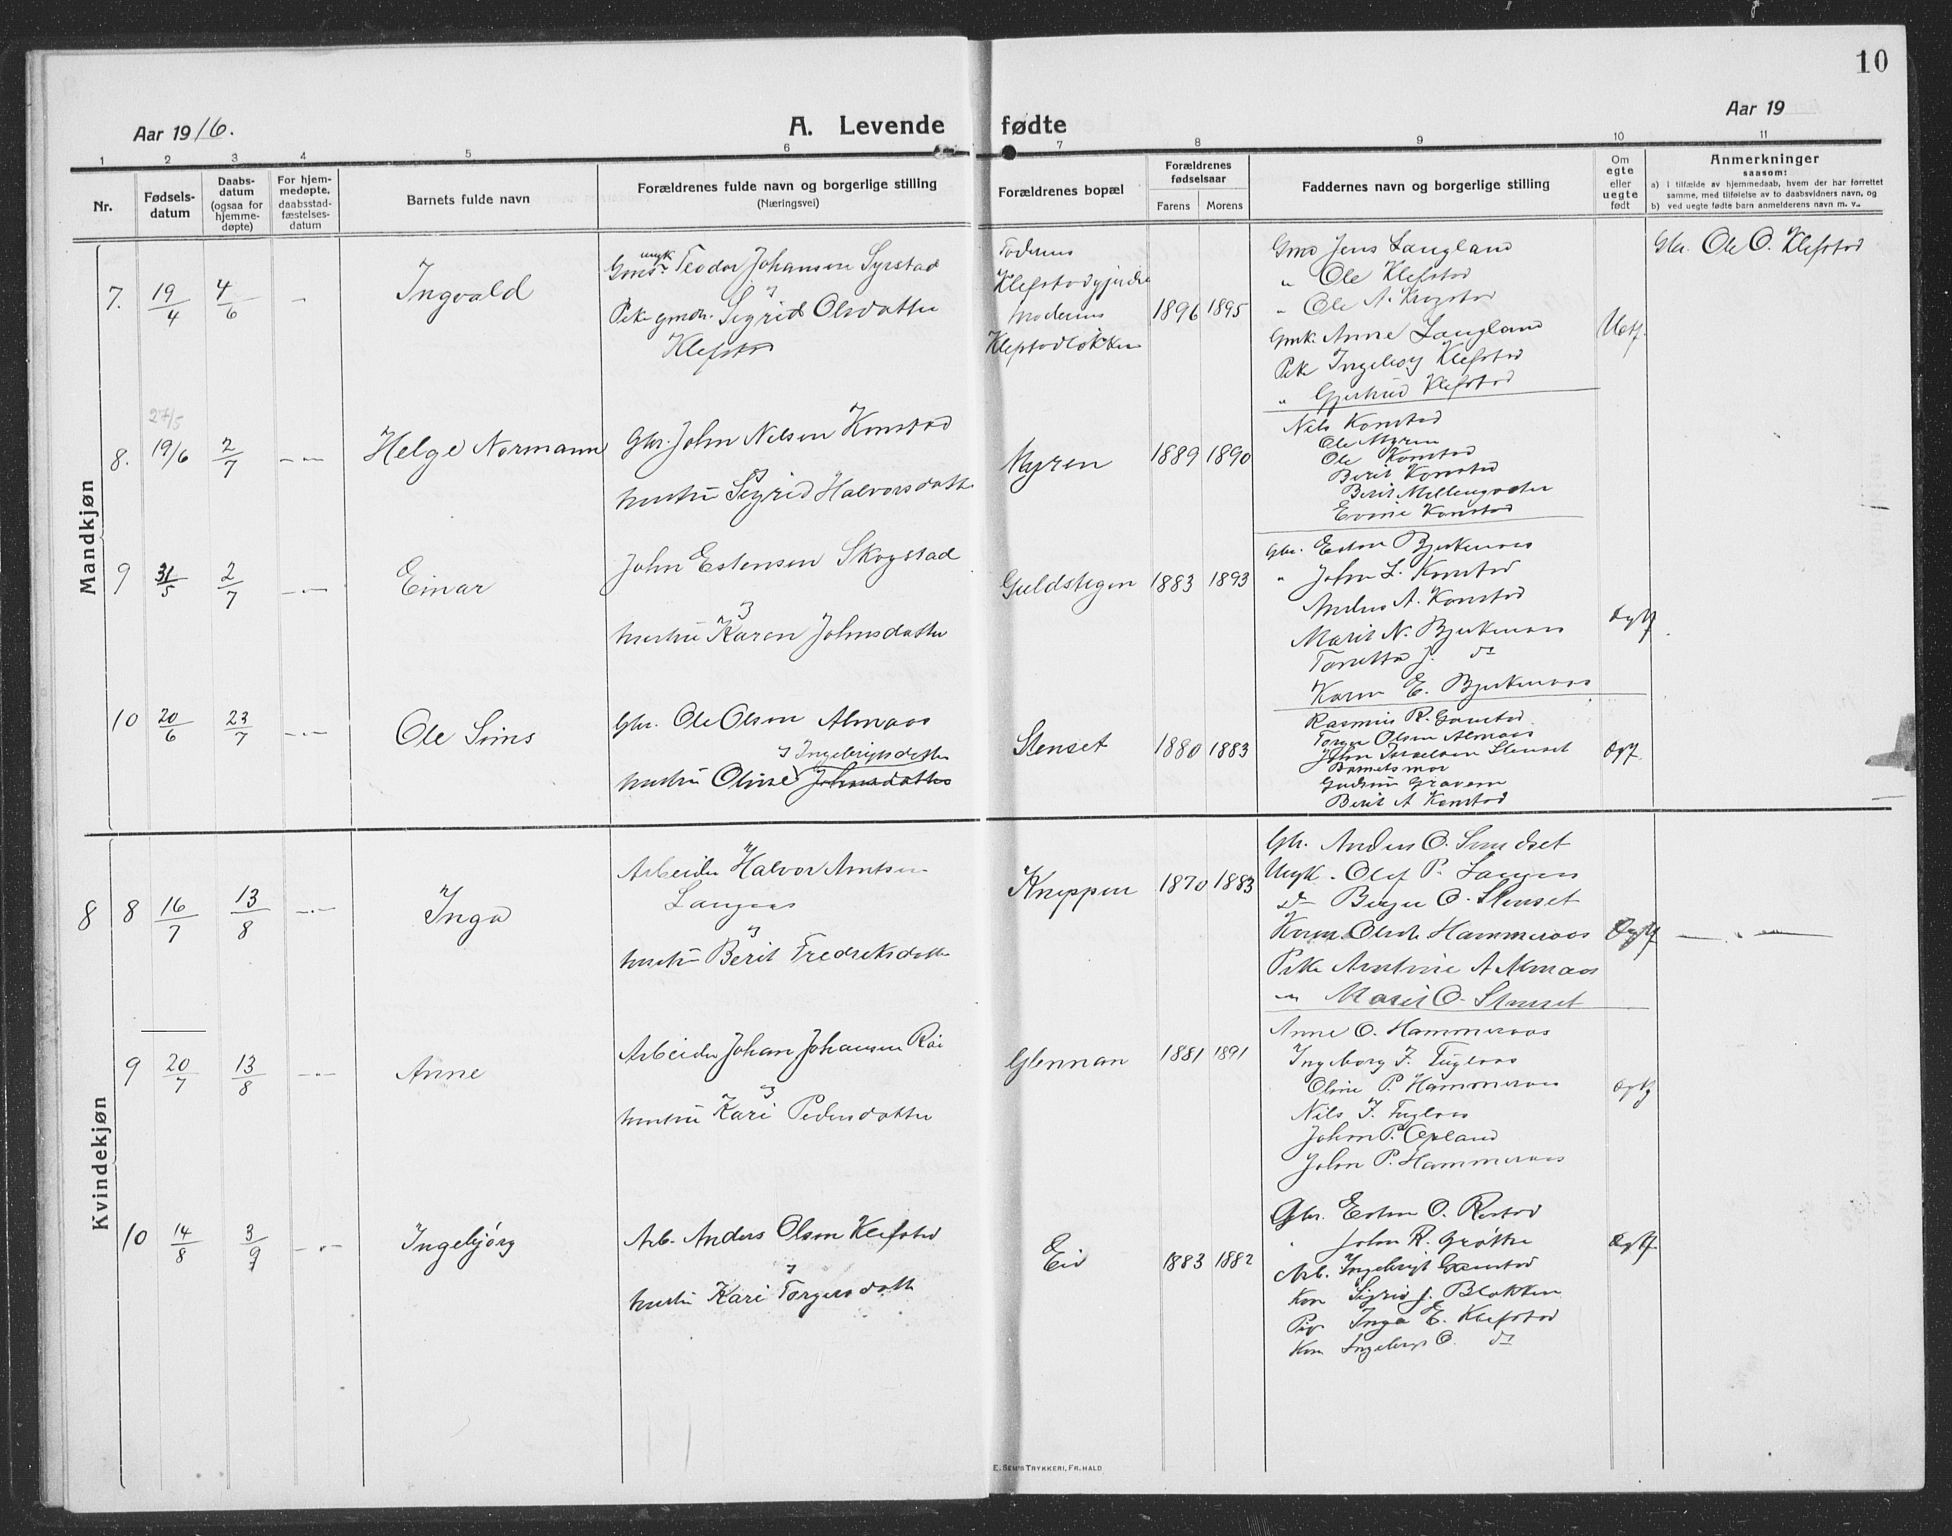 10
Aar 1916.
A. Levende fødte
Aar 19
1 2 3 4 5 6 7 8 9 10 11
Nr.
Fødsels-
datum
Daabs-
datum
(ogsaa for
hjemme-
døpte)
For hjem-
medøpte,
daabsstad-
fæstelses-
datum
Barnets fulde navn
Forældrenes fulde navn og borgerlige stilling
(Næringsvei)
Forældrenes bopæl
Forældrenes
fødselsaar
Farens Morens
Faddernes navn og borgerlige stilling
Om
egte
eller
uegte
født
Anmerkninger
saasom:
a) I tilfælde av hjemmedaab, hvem der har forrettet
samme, med tilføielse av to daabsvidners navn, og
b) ved uegte fødte barn anmelderens navn m. v..
Mandkjøn
7. 19/4 4/6 - Ingvald
ungk.
Gmds. Teodor Johansen Syrstad
Pike gmdr. Sigrid Olsdatter
Klefstad
Faderens
Moderens
Klefstadløkken
1896 1895
Gmd Jens Langland
" Ole Klefstad
" Ole A. Krogstad
Gmk. Anne Langland
Pike Ingeborg Klefstad
" Gjertrud Klefstad
Uegtf.
Gbr. Ole O. Klefstad
27/5
8. 19/6 2/7 - - - Helge Normann
Gbr. John Nilsen Konstad
hustru Sigrid Halvorsdatter
Myren 1889 1890
Nils Konstad
Ole Myren
Ole Konstad
Berit Konstad
Berit
Konstad
9 31/5 2/7 - - - Einar
John Estensen Skogstad
hustru Karen Johnsdatter
Guldstegen 1883 1893
Gbr. Esten Bjerkenaas
" John L. Konstad
Anders A. Konstad
Marit N. Bjerkenaas
J. do
Karen E. Bjerkenaas
Egtf
10 20/6 23/7 - - - Ole Sims
Gbr. Ole Olsen Almaas
Ingebrigtsdatter
hustru Oline Johnsdatter
Stenset 1880 1883
Rasmus R. Gonstad
Olsen Almaas
John Stenset
Barnets mor
Gudrun Gravem
Berit A Konstad
Egtf.
Kvindekjøn
8 8 16/7 13/8 - - - Inga
Arbeider Halvor Arntsen
Langaas
hustru Berit Fredriksdatter
Kneppen 1870 1883
Gbr. Anders O. Stenset
Ungk. Olof P. Langaas
do Birger O. Stenset
Olsdr Hammeraas
Pike Arntine A Almaas
" Marit O. Stenset
Egtf
9 20/7 13/8 - - - Anne
Arbeider Johan Johansen Røe
hustru Kari Pedersdatter
Glennan 1881 1891
Anne O. Hammeraas
Ingeborg J. Fuglaas
Oline P. Hammeraas
Nils J. Fuglaas
John P. Opland
John P. Hammeraas
Egtf
10 14/8 3/9 - - - Ingebjørg
Arb. Anders Olsen Klefstad
hustru Kari Torgersdatter
Eid 1883 1882
Gbr. Esten O.
" John R. Grøtte
Arb. Ingebrigt Gaustad
Kone Sigrid J. Blokken
Pige Inga E. Klefstad
Kone O. do
Egtf
E. SEM'S TRYKKERI, FR.HALD